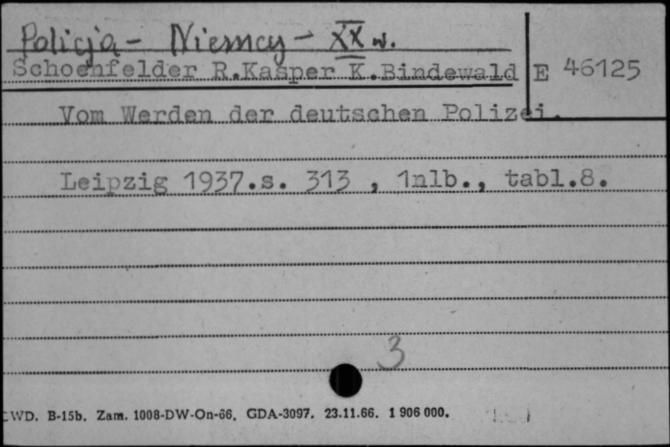 Policja - Niemcy - XX w.
Schoenfelder R.Kasper K.Bindewald E 46125
Vom Werden der deutschen Polizei.
Leipzig 1937.s. 313 , 1nlb., tabl.8.
3
LWD. B-15b. Zam. 1008-DW-On-66. GDA-3097. 23.11.66. 1 906 000.